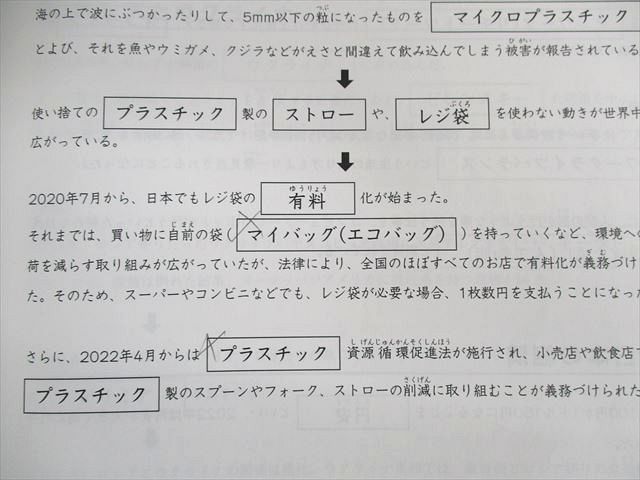 海の上で波にぶつかったりして、5mm以下の粒になったものを マイクロプラスチック
とよび、それを魚やウミガメ、クジラなどがえさと間違えて飲み込んでしまう被害が報告されている
使い捨ての プラスチック 製の ストロー や、 レジ袋 を使わない動きが世界中
広がっている。
2020年7月から、日本でもレジ袋の 有料 化が始まった。
それまでは、買い物に自前の袋( マイバッグ(エコバッグ) )を持っていくなど、環境への
荷を減らす取り組みが広がっていたが、法律により、全国のほぼすべてのお店で有料化が義務づけ
た。そのため、スーパーやコンビニなどでも、レジ袋が必要な場合、1枚数円を支払うことになった
さらに、2022年4月からは プラスチック 資源循環促進法が施行され、小売店や飲食店で
プラスチック 製のスプーンやフォーク、ストローの削減に取り組むことが義務づけられた